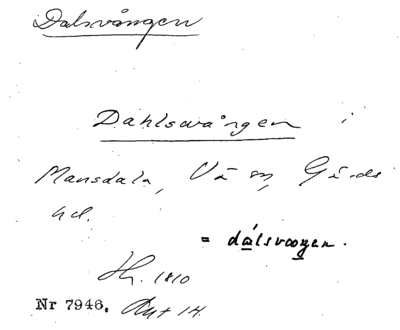 Dalsvången
Dahlsvången i
Mansdala, Vä sn, Gärds
hd.
= dálsvoŋen.
Hy. 1810
Nr 7946, Akt 14.